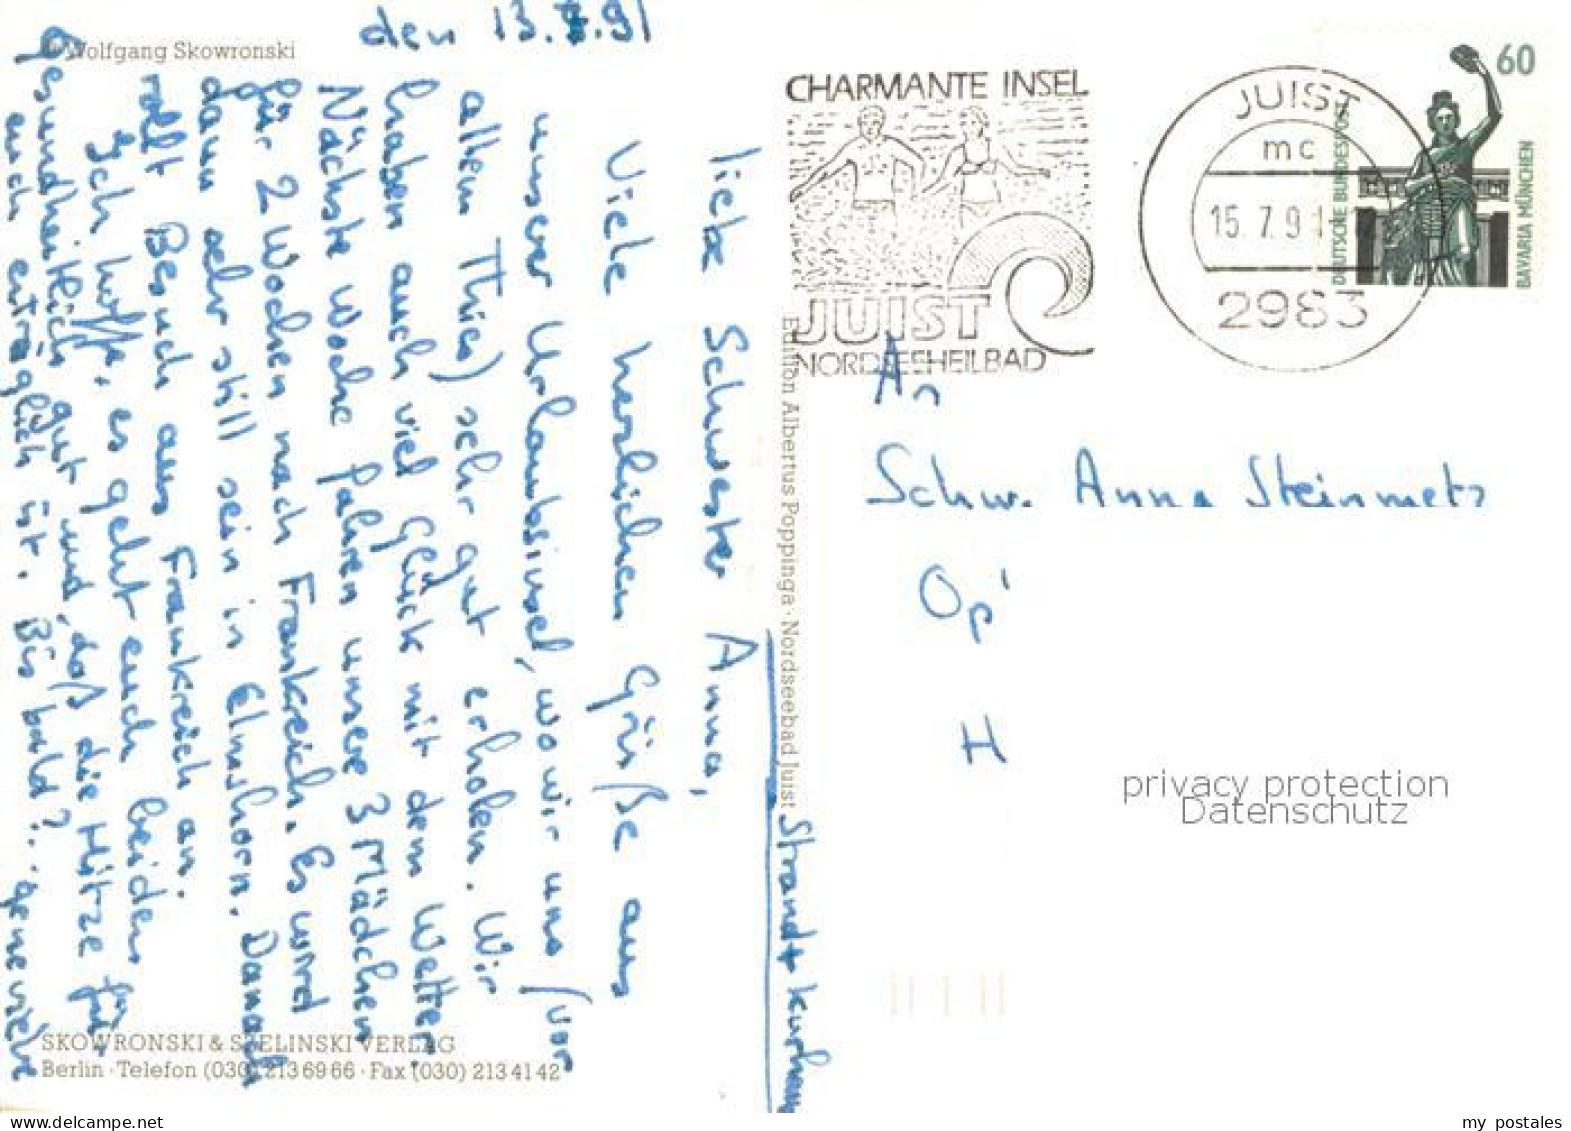 © Wolfgang Skowronski
den 13.7.91
liebe Schwester Anna,
Viele herzlichen Grüße aus
unserer Urlaubsinsel, wo wir uns (vor
allem Thies) sehr gut erholen. Wir
haben auch viel Glück mit dem Wetter.
Nächste Woche fahren unsere 3 Mädchen
für 2 Wochen nach Frankreich. Es wird
dann sehr still sein in Elmshorn. Danach
rollt Besuch aus Frankreich an.
Ich hoffe, es geht euch beiden
gesundheitlich gut und, daß die Hitze für
euch erträglich ist. Bis bald?..
SKOWRONSKI & SZELINSKI VERLAG
Berlin · Telefon (030) 2136966 · Fax (030) 2134142
Edition Albertus Poppinga · Nordseebad Juist
Strand+Kurhaus
CHARMANTE INSEL
JUIST
NORDSEEHEILBAD
JUIST
mc
15.7.91
2983
60
DEUTSCHE BUNDESPOST
BAVARIA MÜNCHEN
An
Schw. Anna Steinmetz
Op
H
privacy protection
Datenschutz
www.delcampe.net
my_postales